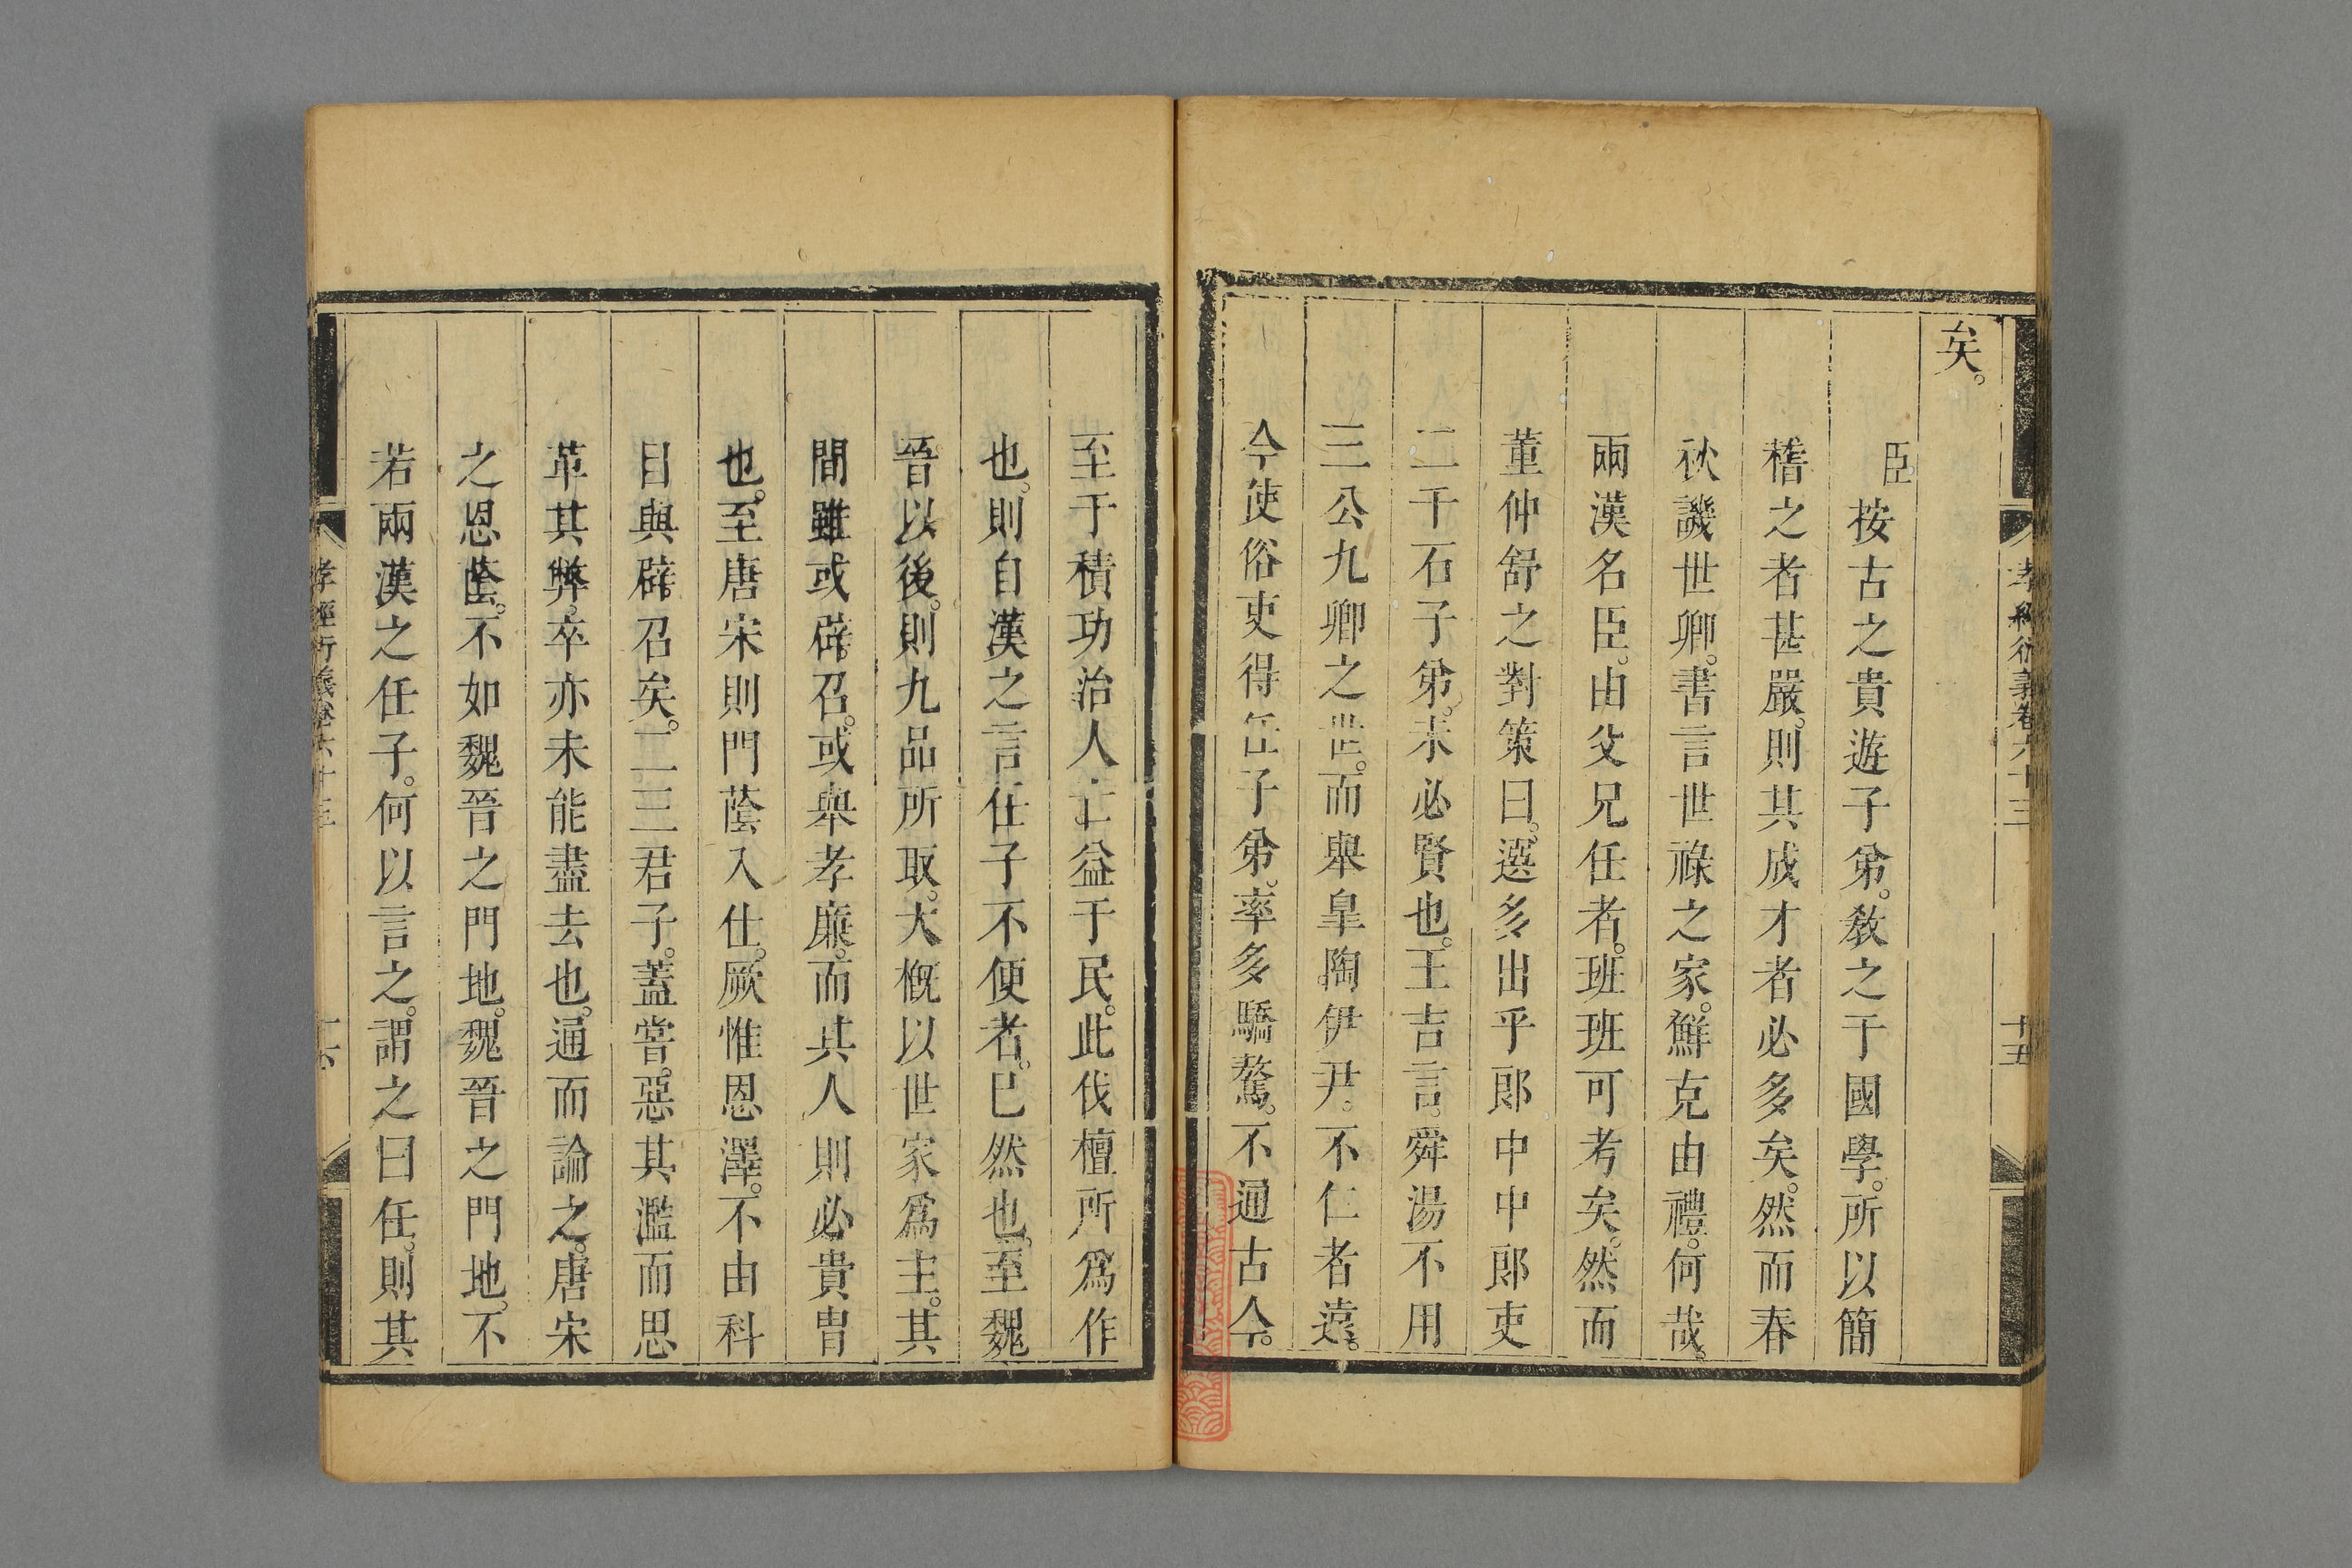 孝經衍義卷六十三
十五
矣。
臣按古之貴遊子弟。教之于國學。所以簡
稽之者甚嚴。則其成才者必多矣。然而春
秋譏世卿。書言世祿之家。鮮克由禮。何哉。
兩漢名臣。由父兄任者。班班可考矣。然而
董仲舒之對策曰。選多出乎郎中中郎吏
二千石子弟。未必賢也。王吉言。舜湯不用
三公九卿之世。而舉皐陶伊尹。不仁者遠。
今使俗吏得任子弟。率多驕驁。不通古今。
至于積功治人亡益于民。此伐檀所爲作
也。則自漢之言任子不便者。已然也。至魏
晉以後。則九品所取。大槪以世家爲主。其
間雖或辟召。或舉孝廉。而其人則必貴胄
也。至唐宋則門蔭入仕。厥惟恩澤。不由科
目與辟召矣。二三君子。蓋嘗惡其濫而思
革其弊。卒亦未能盡去也。通而論之。唐宋
之恩蔭。不如魏晉之門地。魏晉之門地。不
若兩漢之任子。何以言之。謂之曰任。則其
孝經衍義卷六十三
十六